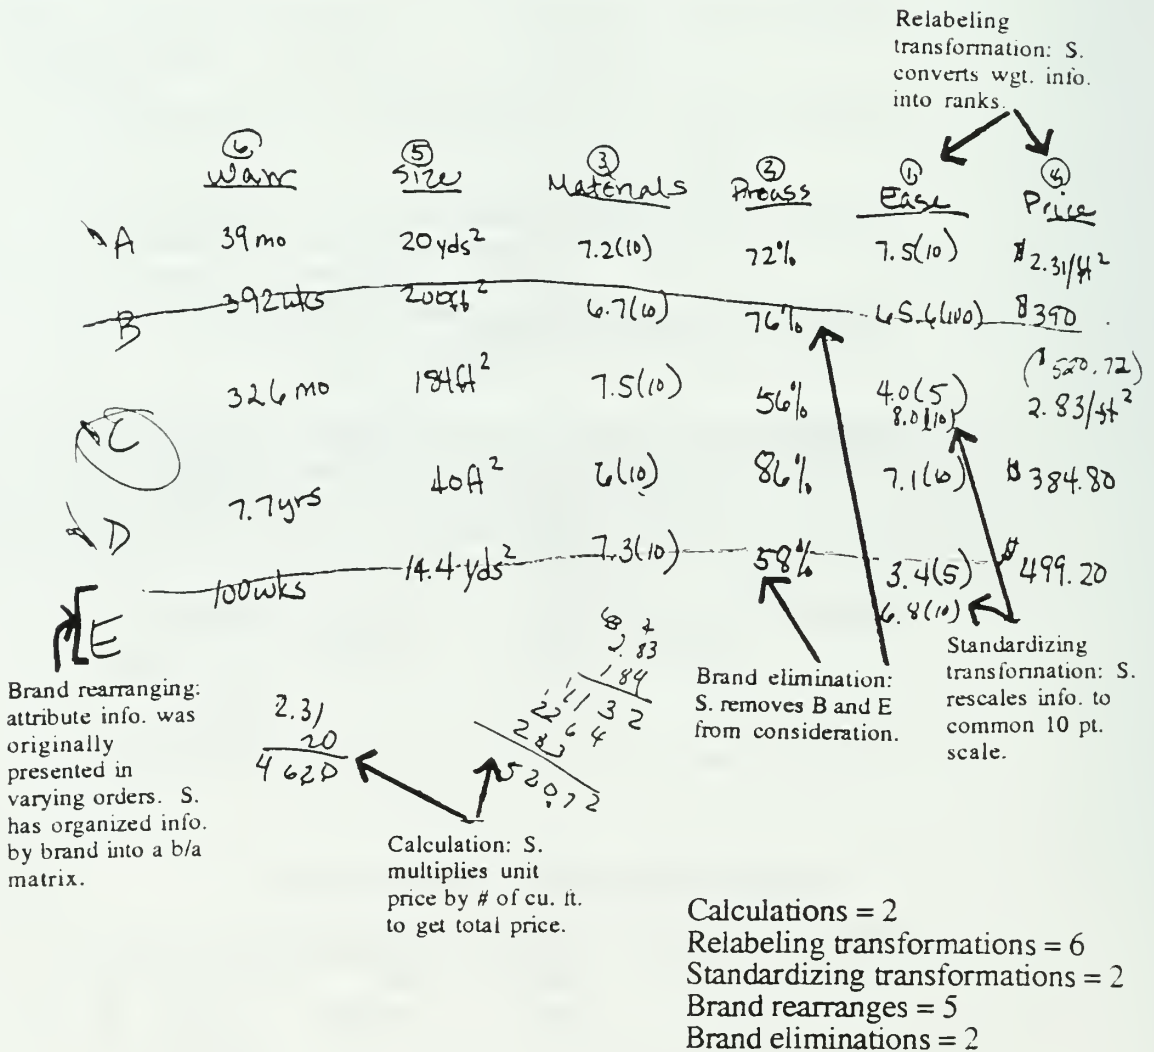 Relabeling
transformation: S.
converts wgt. info.
into ranks.
⑥ ⑤ ③ ② ① ④
Warr Size Materials Process Ease Price
A 39 mo 20 yds² 7.2(10) 72% 7.5(10) $2.31/ft²
B 392 wks 200 ft² 6.7(10) 76% 65.6(100) $390
($520.72)
C 326 mo 184 ft² 7.5(10) 56% 4.0(5) 2.83/ft²
8.0(10)
D 7.7 yrs 40 ft² 6(10) 86% 7.1(10) $384.80
E 100 wks 14.4 yds² 7.3(10) 58% 3.4(5) $499.20
6.8(10)
Brand rearranging:
attribute info. was
originally
presented in
varying orders. S.
has organized info.
by brand into a b/a
matrix.
2.31
20
4620
2.83
184
1132
2264
283
520.72
Calculation: S.
multiplies unit
price by # of cu. ft.
to get total price.
Brand elimination:
S. removes B and E
from consideration.
Standardizing
transformation: S.
rescales info. to
common 10 pt.
scale.
Calculations = 2
Relabeling transformations = 6
Standardizing transformations = 2
Brand rearranges = 5
Brand eliminations = 2